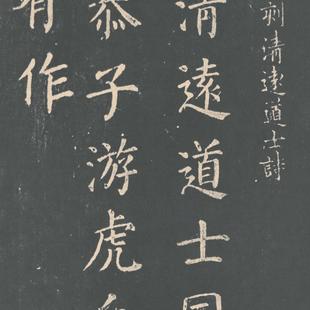 刻清遠道士詩
清遠道士同
恭子游虎
有作